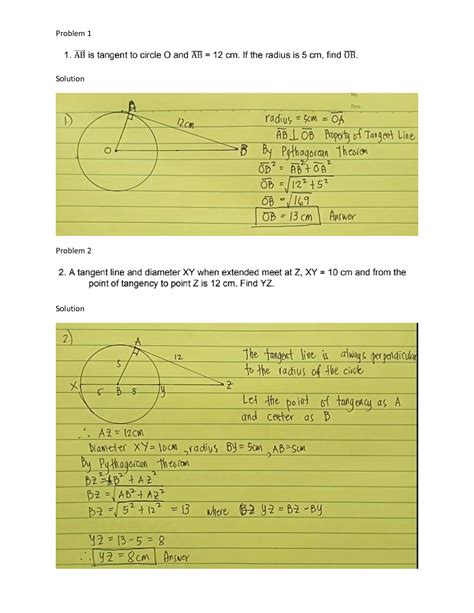 Problem 1
1. AB is tangent to circle O and AB = 12 cm. If the radius is 5 cm, find OB.
Solution
No.
Date:
1)
A
12cm
O
B
radius = 5cm = OA
AB ⊥ OB Property of Tangent Line
By Pythagorean Theorem
OB² = AB² + OA²
OB = √12² + 5²
OB = √169
OB = 13 cm Answer
Problem 2
2. A tangent line and diameter XY when extended meet at Z, XY = 10 cm and from the
point of tangency to point Z is 12 cm. Find YZ.
Solution
2)
A
5
12
X
5
B
5
y
Z
The tangent line is always perpendicular
to the radius of the circle
Let the point of tangency as A
and center as B
∴ AZ = 12cm
Diameter XY = 10cm, radius BY = 5cm, AB = 5cm
By Pythagorean Theorem
BZ² = AB² + AZ²
BZ = √AB² + AZ²
BZ = √5² + 12² = 13 where YZ = BZ - BY
YZ = 13 - 5 = 8
∴ YZ = 8cm Answer